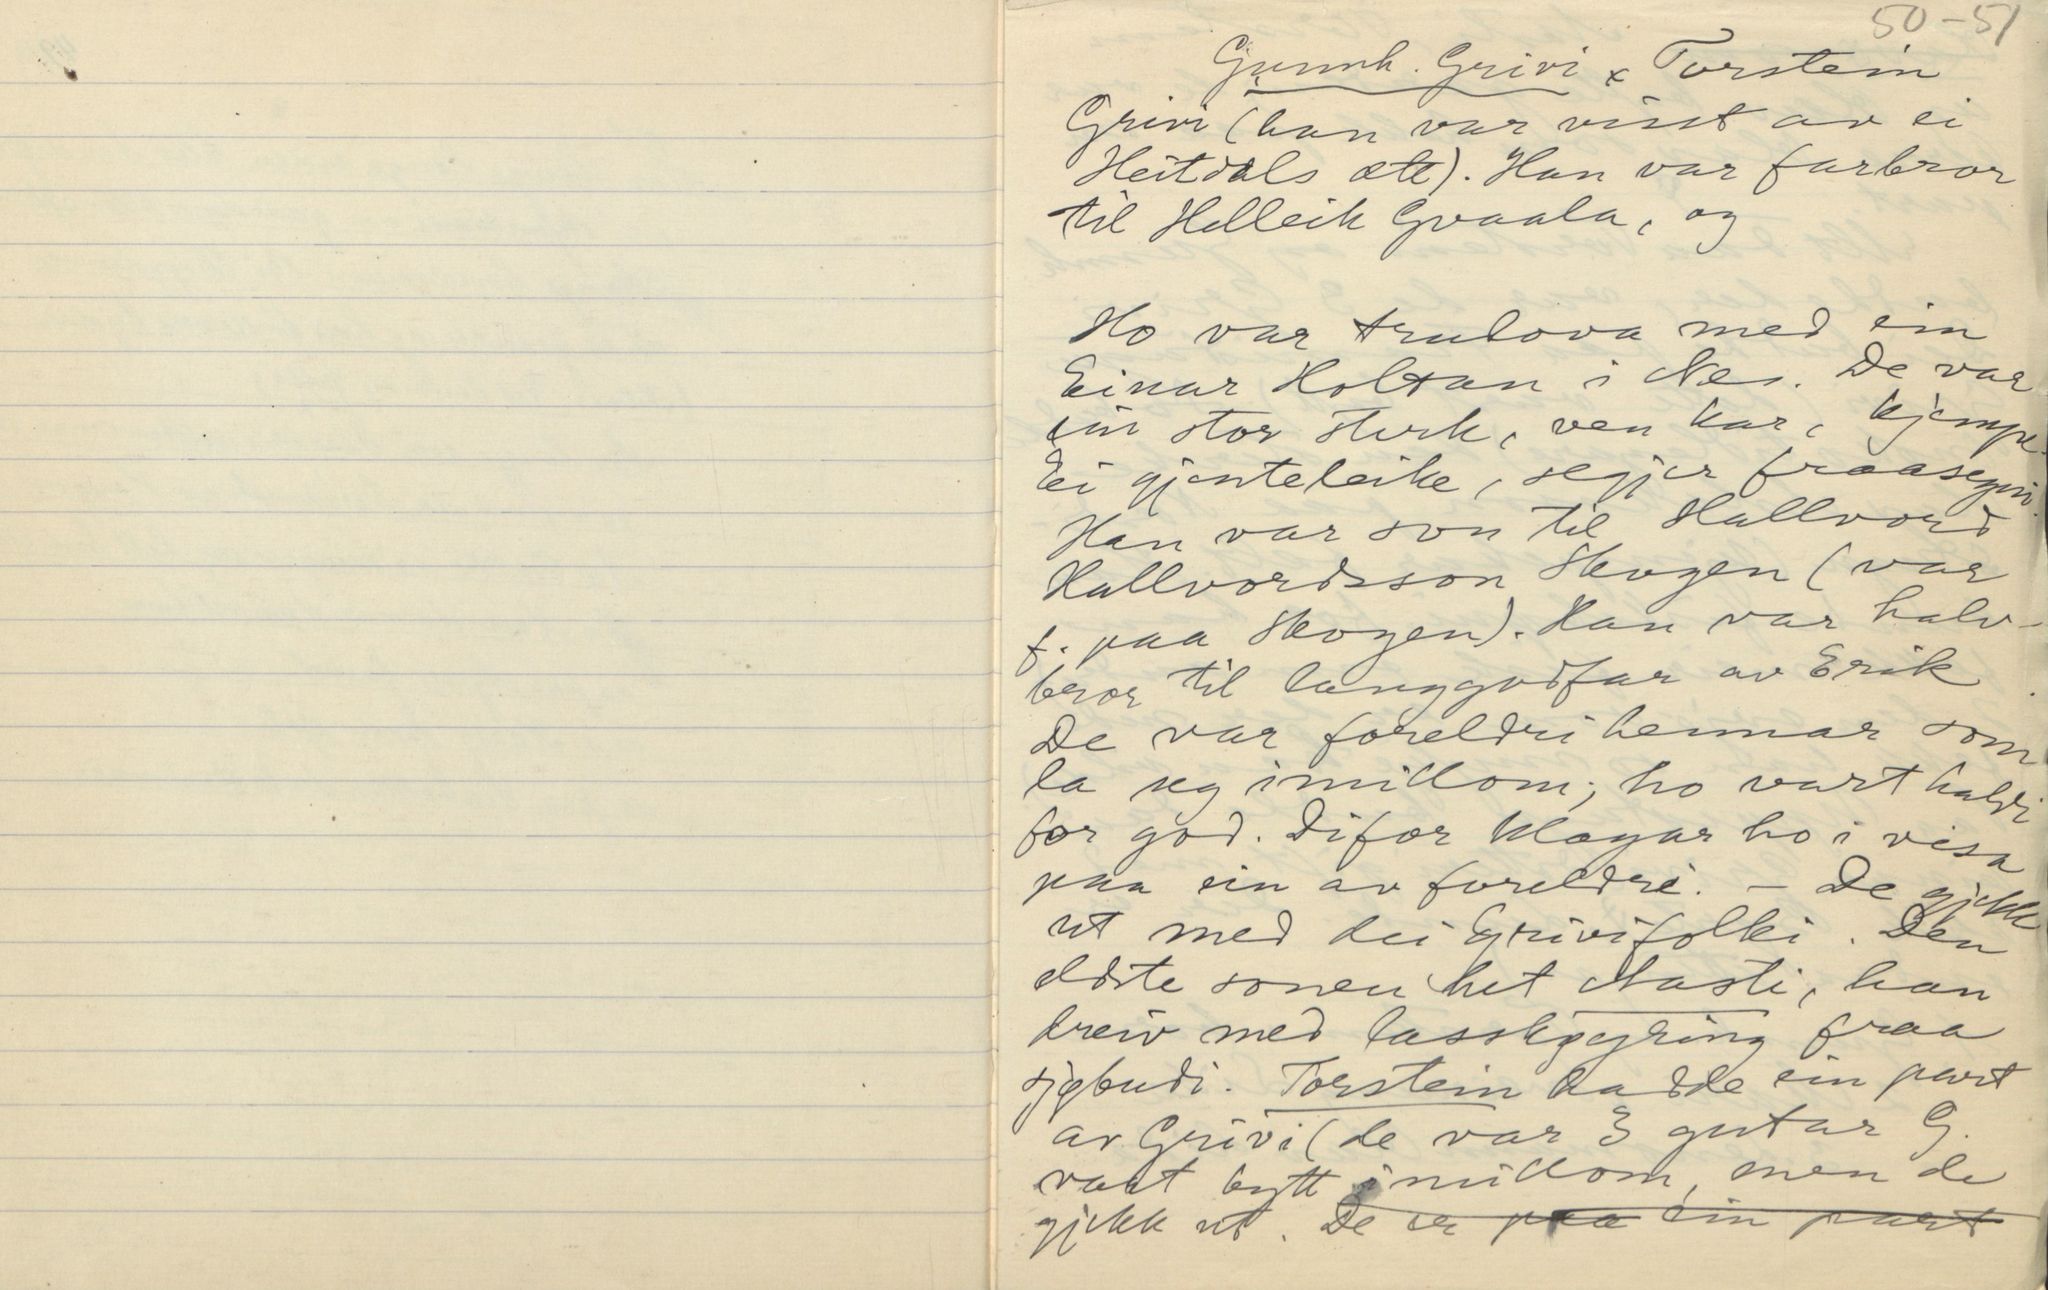 50-51
Gunnh. Grivi x Torstein
Grivi (han var visst av ei
Heitdals ætt). Han var farbror
til Helleik Gvaala, og
Ho var trulova med ein
Einar Holtan i Nes. De var
ein stor sterk, ven kar, kjempe.
Ei gjenteleike, segjer fraasegni.
Han var son til Hallvord
Hallvordsson Skogen (var
f. paa Skogen). Han var halv-
bror til langgodfar av Erik
De var foreldri hennar som
la seg imillom; ho vart haldi
for god. Difor klagar ho i visa
paa ein av foreldri. - De gjekk
ut med dei Grivifolki. Den
eldste sonen het Nasti, han
dreiv med lasskøyring fraa
sjøbudi. Torstein hadde ein part
av Grivi (de var 3 gutar G.
vart bytt imillom, men de
gjekk ut. De er paa ein part